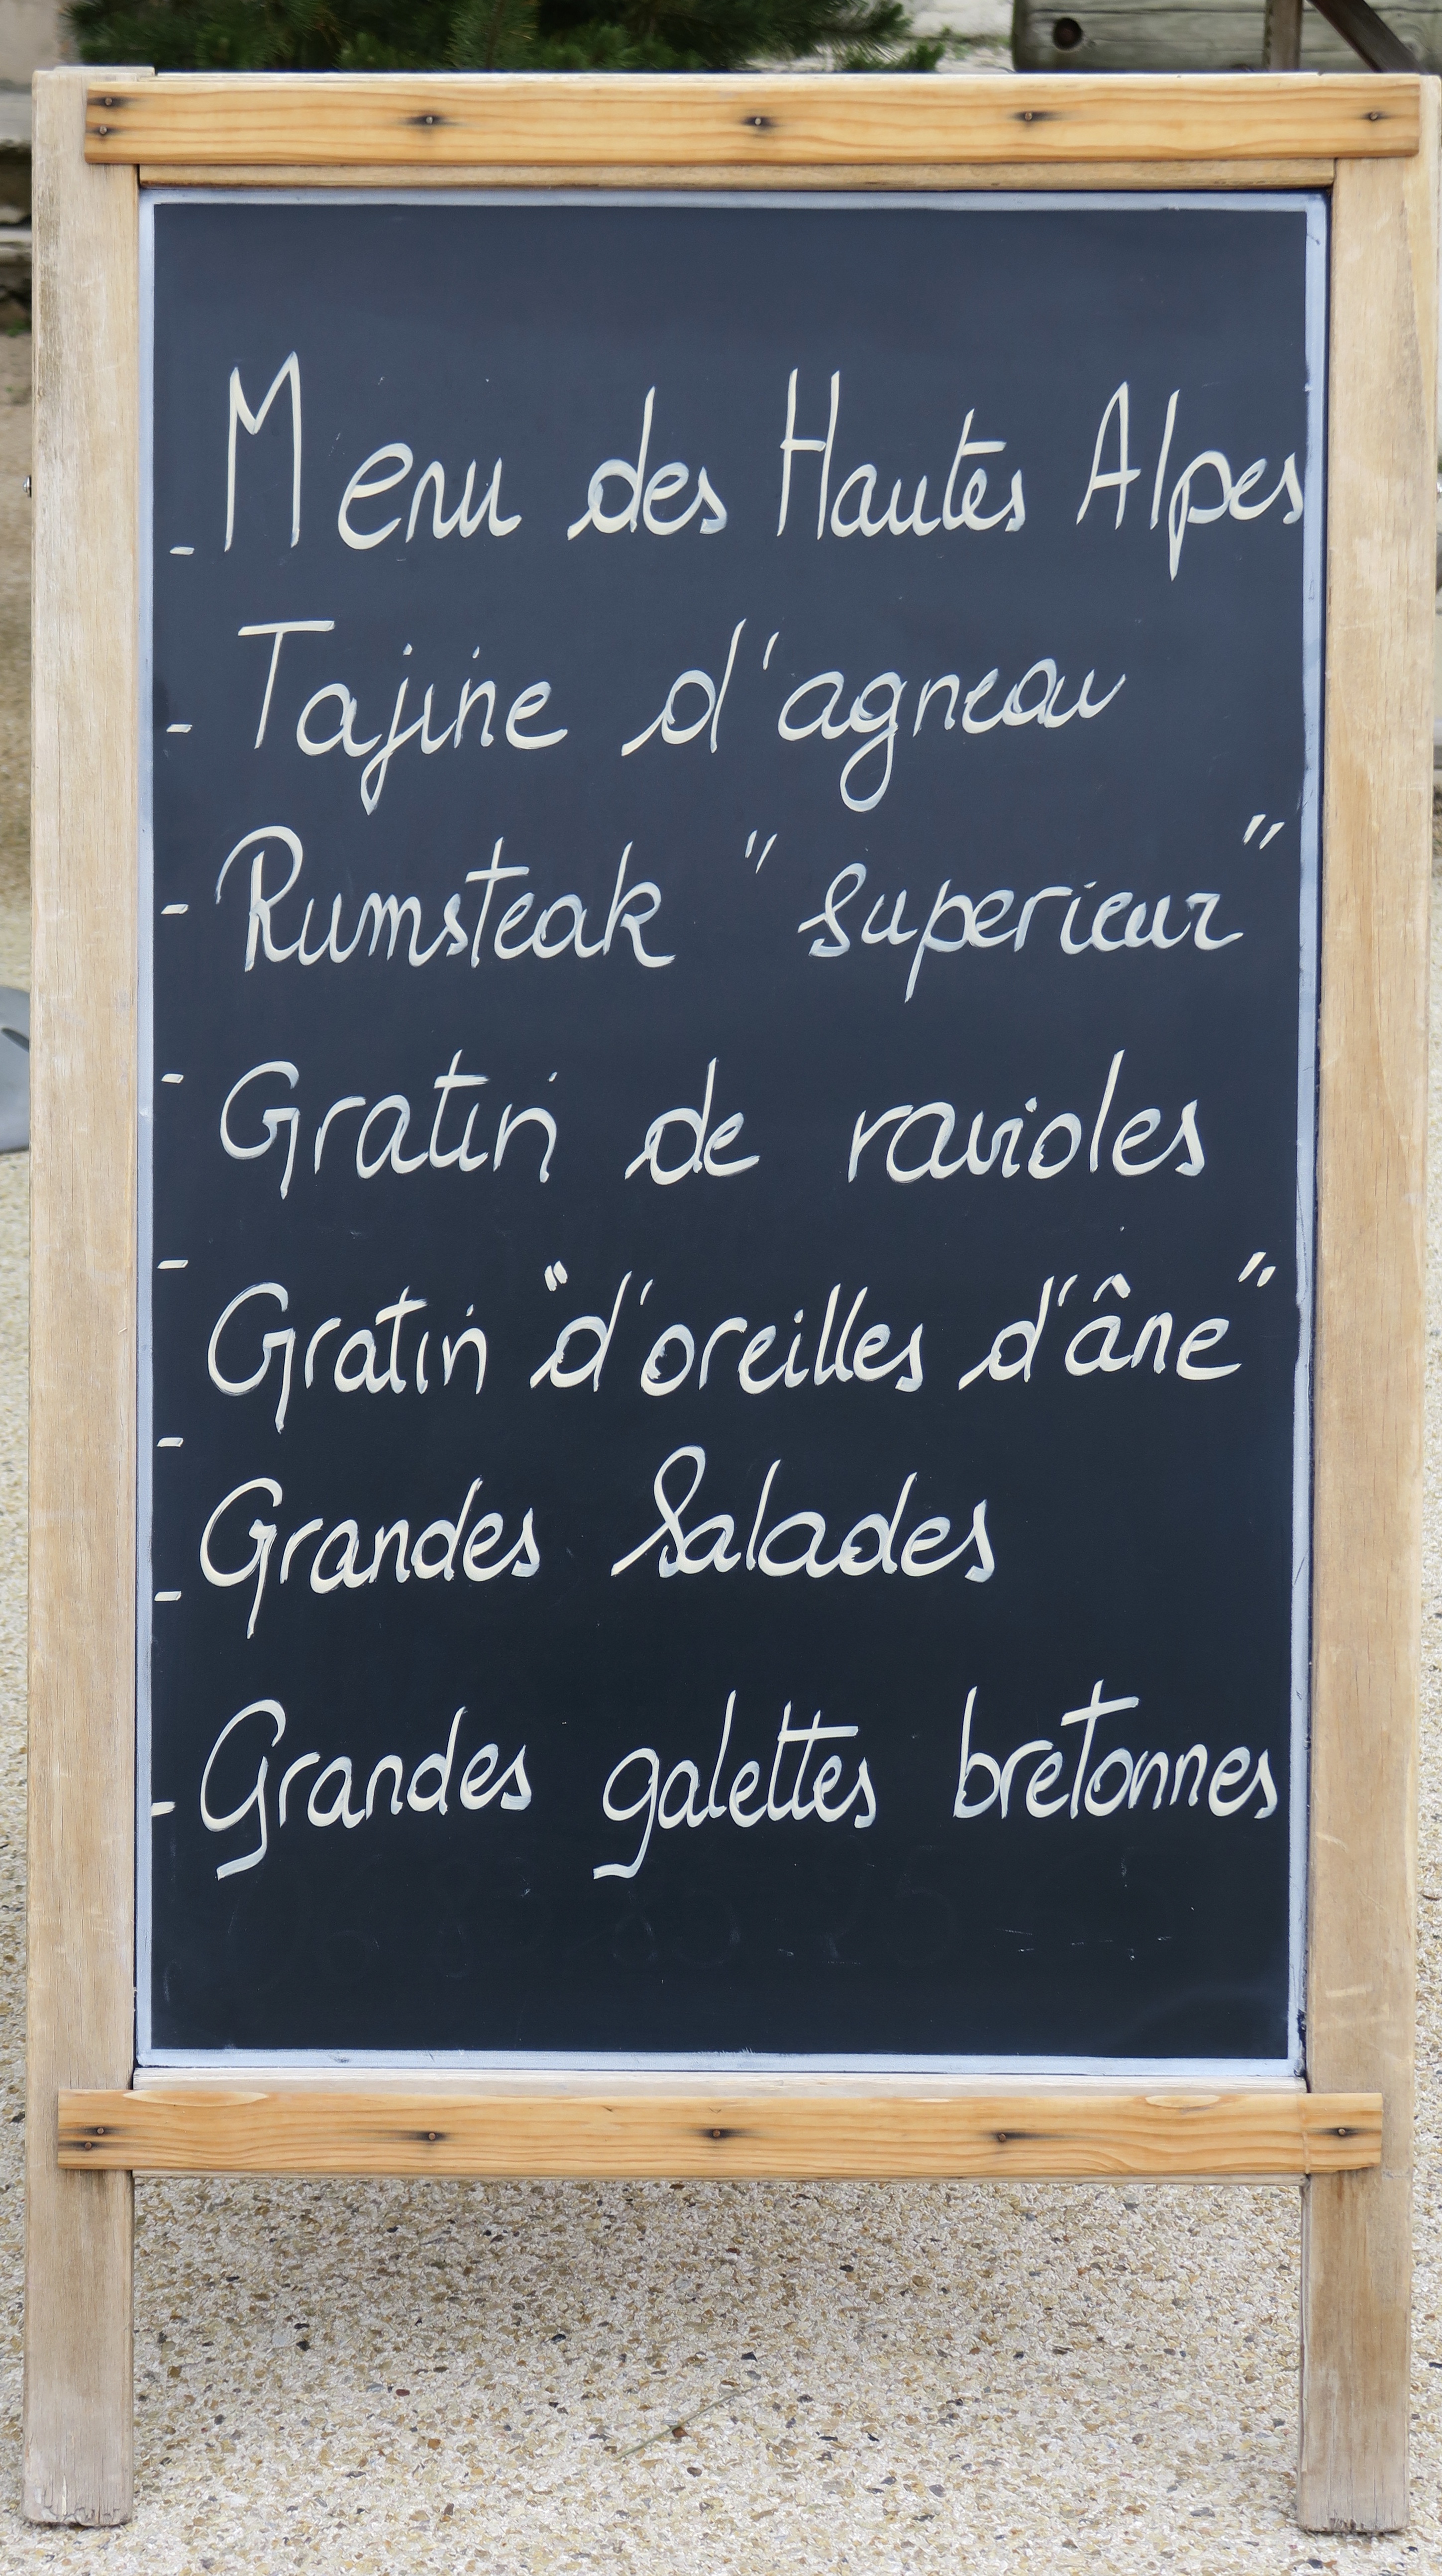 - Menu des Hautes Alpes
- Tajine d'agneau
- Rumsteak "superieur"
- Gratin de ravioles
- Gratin "d'oreilles d'âne"
- Grandes Salades
- Grandes galettes bretonnes